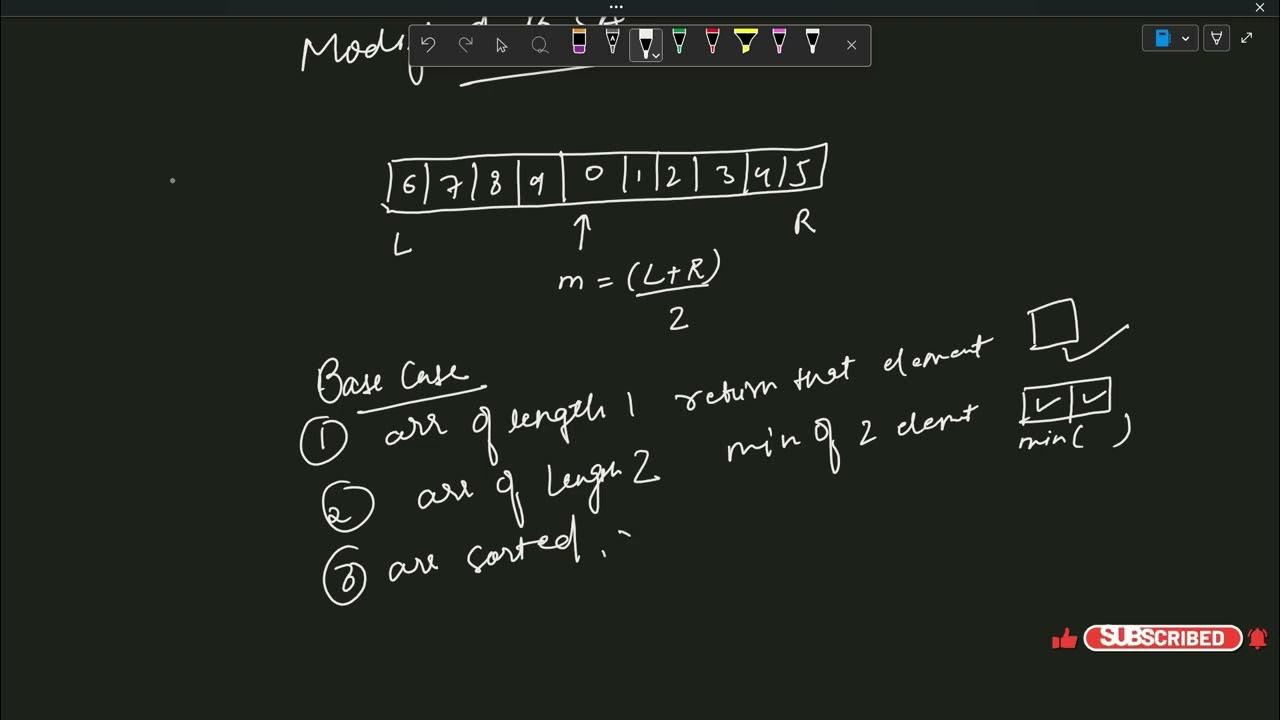 6 7 8 9 0 1 2 3 4 5
L R
m = (L+R)
2
Base Case
1 arr of length 1 return that element
2 arr of length 2 min of 2 element
min( )
3 arr sorted
SUBSCRIBED